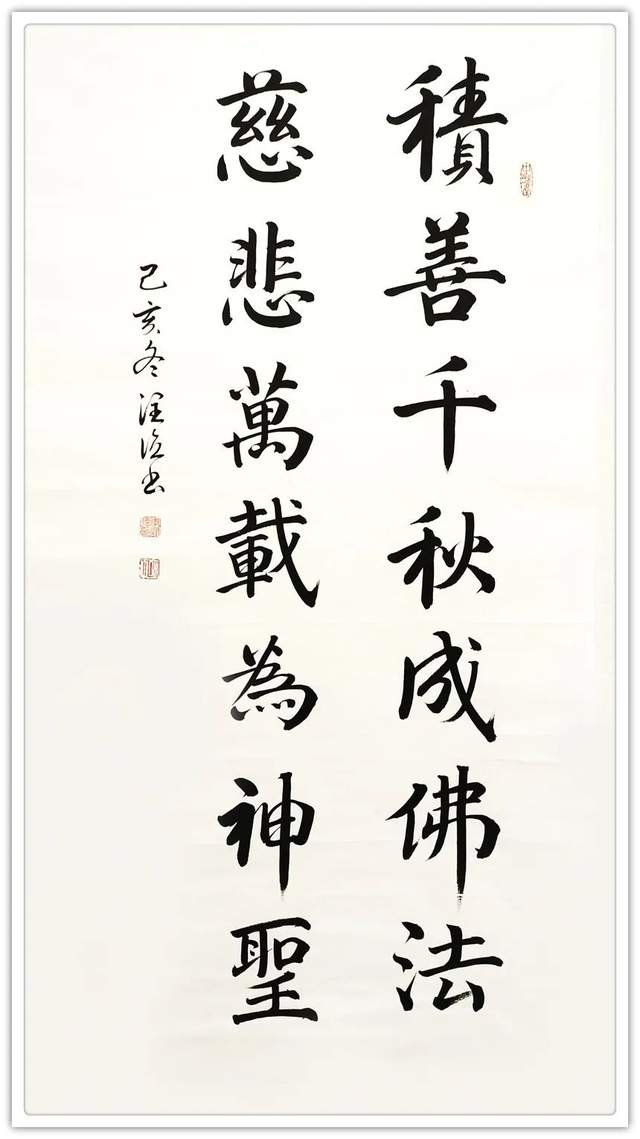 積善千秋成佛法
慈悲萬載為神聖
己亥冬汪論書